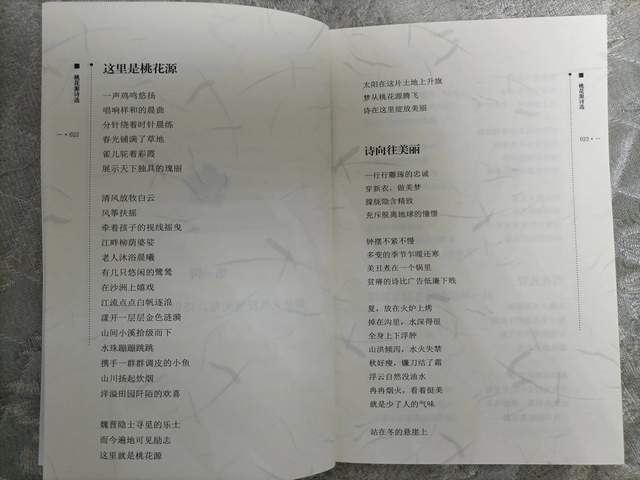 桃花源诗选
022
这里是桃花源
一声鸡鸣悠扬
唱响祥和的晨曲
分针绕着时针晨练
春光铺满了草地
雀儿驼着彩霞
展示天下独具的瑰丽
清风放牧白云
风筝扶摇
牵着孩子的视线摇曳
江畔柳荫婆娑
老人沐浴晨曦
有几只悠闲的鹭鸶
在沙洲上嬉戏
江流点点白帆逐浪
漾开一层层金色涟漪
山间小溪拾级而下
水珠蹦蹦跳跳
携手一群群调皮的小鱼
山川扬起炊烟
洋溢田园阡陌的欢喜
魏晋隐士寻觅的乐土
而今遍地可见励志
这里就是桃花源
太阳在这片土地上升旗
梦从桃花源腾飞
诗在这里绽放美丽
诗向往美丽
一行行雕琢的忠诚
穿新衣，做美梦
朦胧隐含精致
充斥脱离地球的憧憬
钟摆不紧不慢
多变的季节乍暖还寒
美丑煮在一个锅里
贫瘠的诗比广告低廉下贱
夏，放在火炉上烤
掉在沟里，水深得很
全身上下浮肿
山洪倾泻，水火失禁
秋好瘦，镰刀结了霜
浮云自然没油水
冉冉烟火，看着挺美
就是少了人的气味
站在冬的悬崖上
桃花源诗选
023